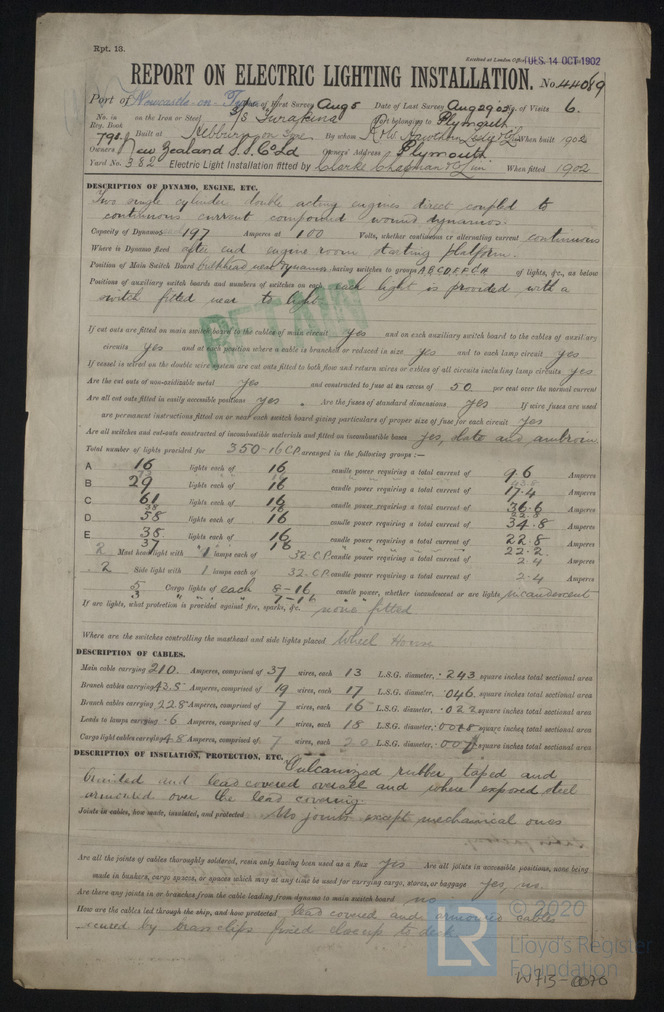 Rpt. 13.
Received at London Office TUES. 14 OCT 1902
REPORT ON ELECTRIC LIGHTING INSTALLATION. No. 44089
Port of Newcastle-on-Tyne Date of First Survey Aug 5 Date of Last Survey Aug 29 No. of Visits 6.
No. in Reg. Book on the Iron or Steel S/S Turakina Port belonging to Plymouth
790 Built at Hebburn on Tyne By whom R & W Hawthorn Leslie & Co Lim When built 1902
Owners New Zealand S.S. Co Ld Owners' Address Plymouth
Yard No. 382 Electric Light Installation fitted by Clarke Chapman & Co Lim When fitted 1902
DESCRIPTION OF DYNAMO, ENGINE, ETC.
Two single cylinder double acting engines direct coupled to
continuous current compound wound dynamos.
Capacity of Dynamos 197 Amperes at 100 Volts, whether continuous or alternating current continuous
Where is Dynamo fixed after end engine room starting platform.
Position of Main Switch Board bulkhead near dynamos having switches to groups A B C D E F G H of lights, &c., as below
Positions of auxiliary switch boards and numbers of switches on each each light is provided with a
switch fitted near to light
RETAIN
If cut outs are fitted on main switch board to the cables of main circuit yes and on each auxiliary switch board to the cables of auxiliary
circuits yes and at each position where a cable is branched or reduced in size yes and to each lamp circuit yes
If vessel is wired on the double wire system are cut outs fitted to both flow and return wires or cables of all circuits including lamp circuits yes
Are the cut outs of non-oxidizable metal yes and constructed to fuse at an excess of 50 per cent over the normal current
Are all cut outs fitted in easily accessible positions yes. Are the fuses of standard dimensions yes If wire fuses are used
are permanent instructions fitted on or near each switch board giving particulars of proper size of fuse for each circuit yes
Are all switches and cut-outs constructed of incombustible materials and fitted on incombustible bases yes, slate and ambroin
Total number of lights provided for 350-16 C.P. arranged in the following groups :—
A 16 lights each of 16 candle power requiring a total current of 9.6 Amperes
B 29 lights each of 16 candle power requiring a total current of 17.4 Amperes
C 61 lights each of 16 candle power requiring a total current of 36.6 Amperes
38 16 22.8
D 58 lights each of 16 candle power requiring a total current of 34.8 Amperes
E 38 lights each of 16 candle power requiring a total current of 22.8 Amperes
37 16 22.2
2 Mast head light with 1 lamps each of 32 C.P. candle power requiring a total current of 2.4 Amperes
2 Side light with 1 lamps each of 32 C.P. candle power requiring a total current of 2.4 Amperes
5 Cargo lights of each 8-16 candle power, whether incandescent or arc lights incandescent
3 " " " 7-16
If arc lights, what protection is provided against fire, sparks, &c. none fitted
Where are the switches controlling the masthead and side lights placed Wheel House
DESCRIPTION OF CABLES.
Main cable carrying 210. Amperes, comprised of 37 wires, each 13 L.S.G. diameter, .243 square inches total sectional area
Branch cables carrying 43.5 Amperes, comprised of 19 wires, each 17 L.S.G. diameter, .046 square inches total sectional area
Branch cables carrying 22.8 Amperes, comprised of 7 wires, each 16 L.S.G. diameter, .022 square inches total sectional area
Leads to lamps carrying .6 Amperes, comprised of 1 wires, each 18 L.S.G. diameter, .0018 square inches total sectional area
Cargo light cables carrying 4.8 Amperes, comprised of 7 wires, each 20 L.S.G. diameter, .007 square inches total sectional area
DESCRIPTION OF INSULATION, PROTECTION, ETC.
Vulcanized rubber taped and
braided and lead covered overall and where exposed steel
armoured over the lead covering
Joints in cables, how made, insulated, and protected No joints except mechanical ones
Are all the joints of cables thoroughly soldered, resin only having been used as a flux yes Are all joints in accessible positions, none being
made in bunkers, cargo spaces, or spaces which may at any time be used for carrying cargo, stores, or baggage yes, no.
Are there any joints in or branches from the cable leading from dynamo to main switch board no
How are the cables led through the ship, and how protected lead covered and armoured cables
secured by brass clips fixed close up to deck
LR © 2020
Lloyd's Register
Foundation
W715-0070